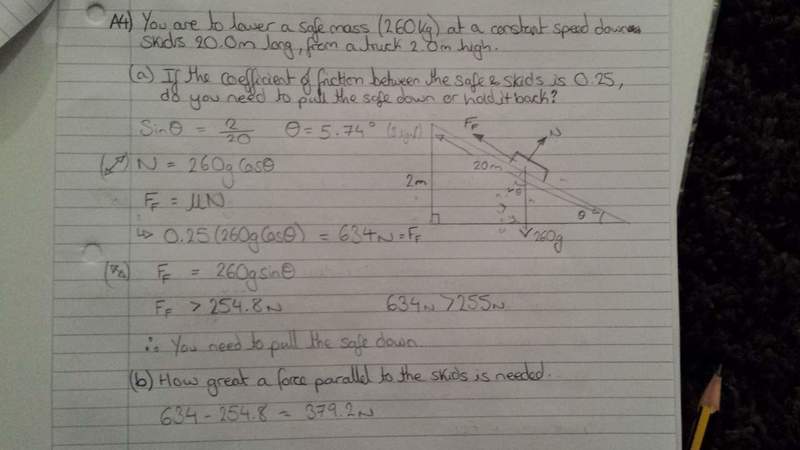 A4) You are to lower a safe mass (260kg) at a constant speed down
skids 20.0m long, from a truck 2.0m high.
(a) If the coefficient of friction between the safe & skids is 0.25,
do you need to pull the safe down or hold it back?
Sinθ = 2/20 θ = 5.74°
N = 260gCosθ
F_F = μN
↳ 0.25(260gCosθ) = 634N = F_F
F_F = 260gsinθ
F_F > 254.8N 634N > 255N
∴ You need to pull the safe down.
(b) How great a force parallel to the skids is needed.
634 - 254.8 = 379.2N
F_F
N
20m
2m
θ
θ
260g